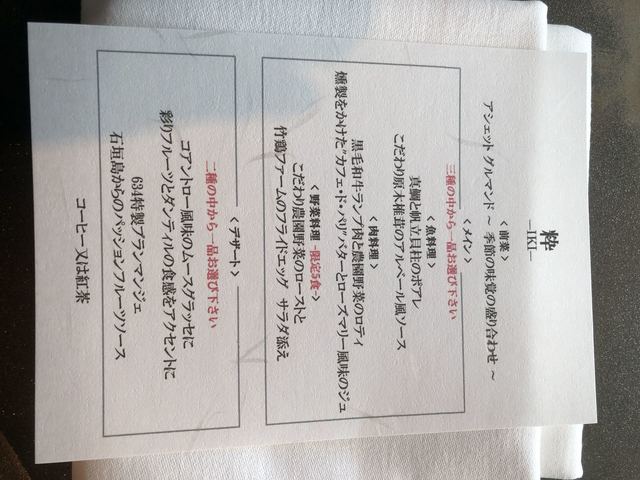 粋
―IKI―
〈 前菜 〉
アシェット グルマンド ～ 季節の味覚の盛り合わせ ～
〈 メイン 〉
三種の中から一品お選び下さい
〈 魚料理 〉
真鯛と帆立貝柱のポアレ
こだわり原木椎茸のアルベール風ソース
〈 肉料理 〉
黒毛和牛ランプ肉と農園野菜のロティ
燻製をかけた"カフェ・ド・パリ"バターとローズマリー風味のジュ
〈 野菜料理 ~限定5食~ 〉
こだわり農園野菜のローストと
竹鶏ファームのフライドエッグ サラダ添え
〈 デザート 〉
二種の中から一品お選び下さい
コアントロー風味のムースグラッセに
彩りフルーツとダンティルの食感をアクセントに
634特製ブランマンジェ
石垣島からのパッションフルーツソース
コーヒー又は紅茶